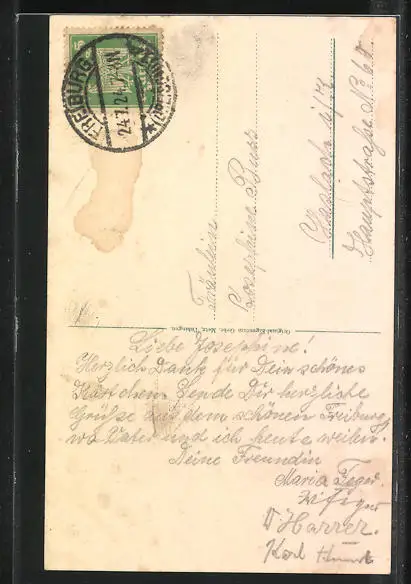 FREIBURG
24.7.24. 7-8N
Fräulein
Josephine Buss
Haslach i/K
Hauptstraße No 60
Original-Eigentum Gebr. Metz, Tübingen.
Liebe Josephine!
Herzlich Dank für Dein schönes
Kärtchen. Sende Dir herzliche
Grüße aus dem schönen Freiburg,
wo Vater und ich heute weilen.
Deine Freundin
Maria Feger.
Harrer.
Karl